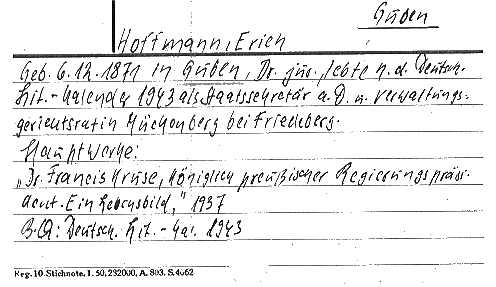 Guben
Hoffmann, Erich
Geb. 6.12.1871 in Guben, Dr. jur., lebte n. d. Deutsch.
Lit.-Kalender 1943 als Staatssekretär a.D. u. Verwaltungs-
gerichtsrat in Müchenberg bei Friedeberg.
Hauptwerke:
„Dr. Francis Kruse, Königlich preußischer Regierungspräsi-
dent. Ein Lebensbild," 1937
B.Q: Deutsch. Lit.-Ka. 1943
Reg. 10. Stichnote, 1. 50, 232000, A. 803. S. 4062